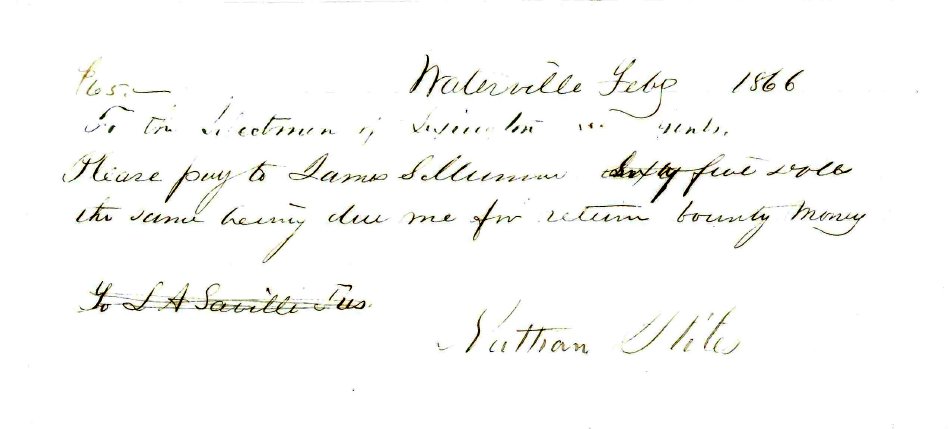 $65.—
Waterville Feby 1866
To the Selectmen of Lexington
Please pay to James S Sixty five dolls
the same being due me for return bounty money
To L A Saville Tres
Nathan